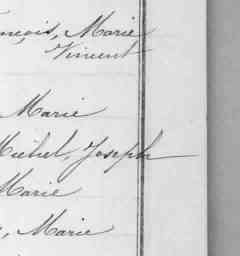 nçois, Marie
Vincent
Marie
Michel, Joseph
Marie
, Marie